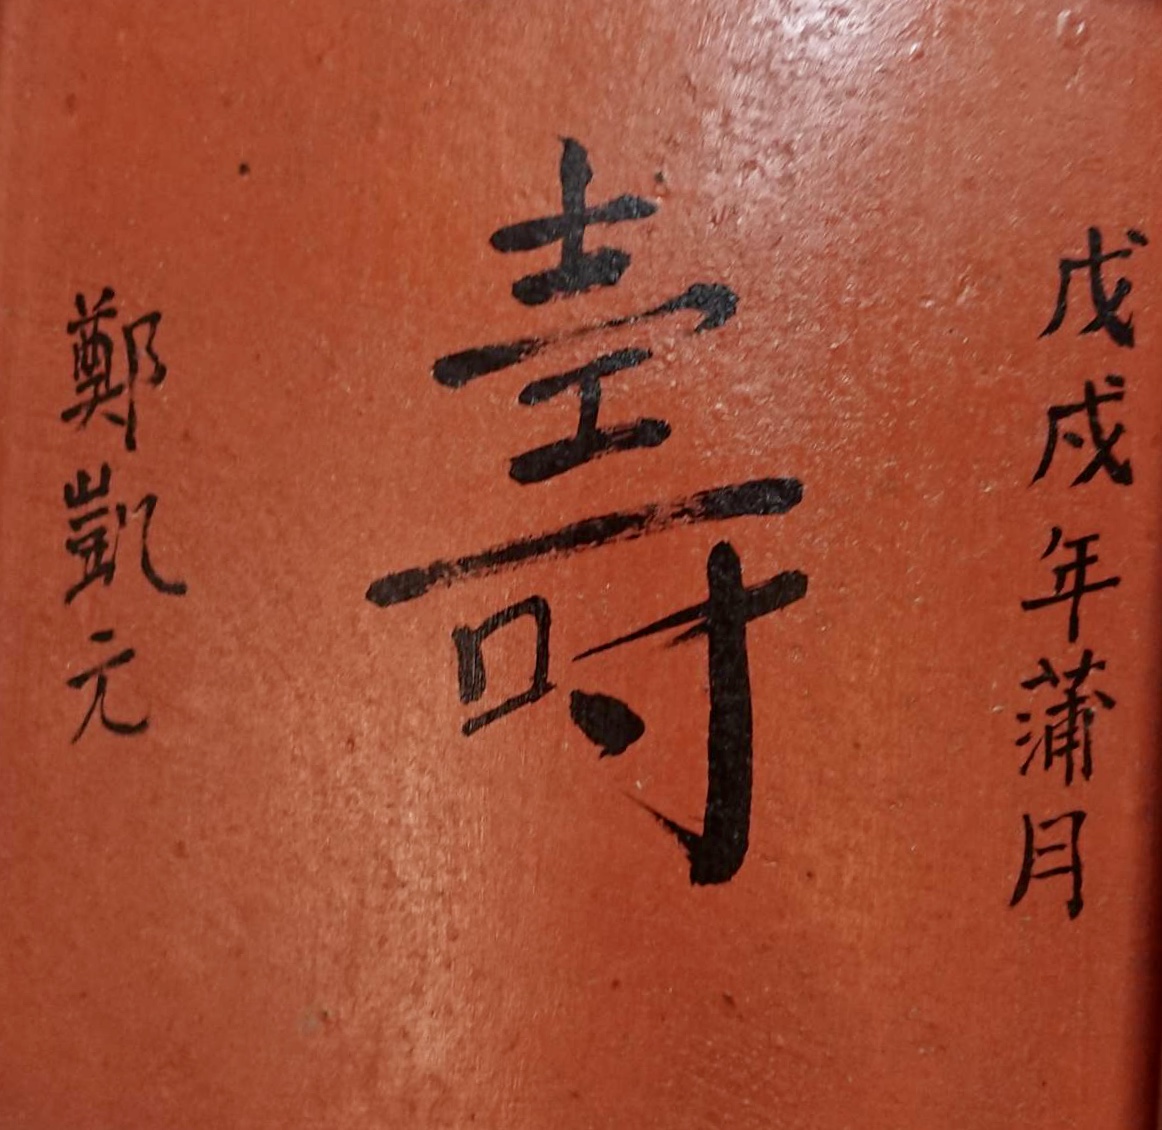 戊戌年蒲月
壽
鄭凱元